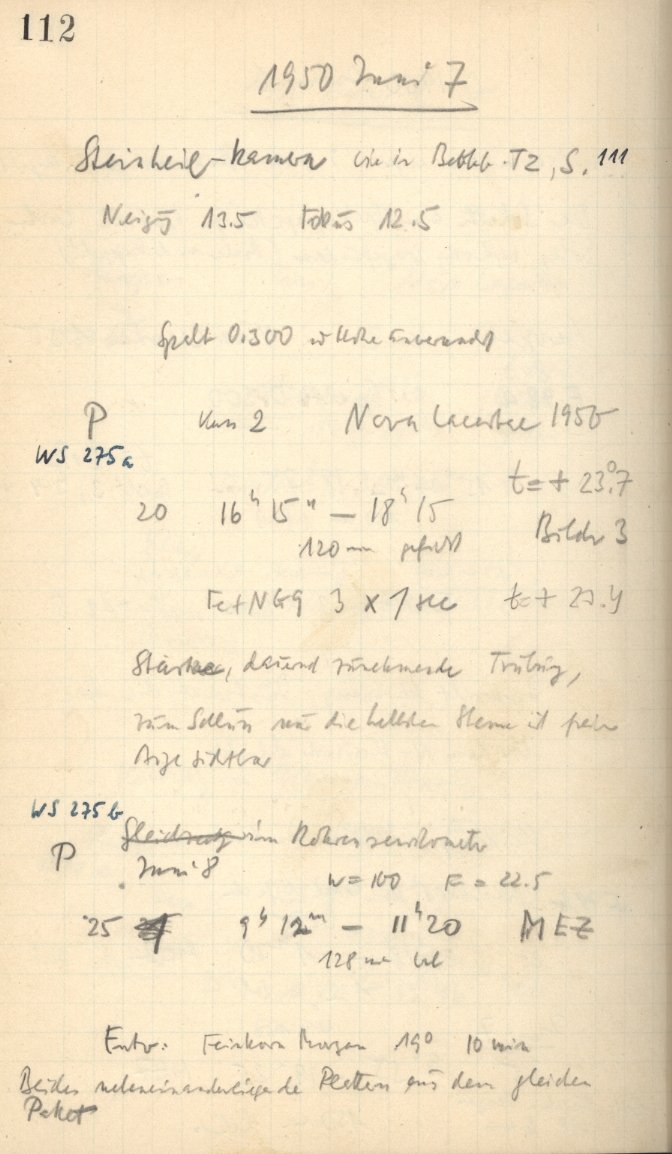 112
1950 Juni 7
Steinheil-Kamera wie in Beob. TZ, S. 111
Neigg 13.5 Fokus 12.5
Spalt 0.300
P Kass 2 Nova Lacertae 1950
WS 275a
t = + 23°.7
20 16ʰ 15ᵐ — 18ʰ 15 Bilder 3
120 min
Fe+NGG 3 x 1 sec t = +
dauernd zunehmende Trübung,
zum Schluss nur die hellsten Sterne mit freiem
Auge sichtbar
WS 275b
P im Röhrensensitometer
Juni 8
w = 100 F = 22.5
25 9ʰ 12ᵐ — 11ʰ 20 MEZ
128 min bel
Entw: Feinkorn 19° 10 min
Beides nebeneinanderliegende Platten aus dem gleichen
Paket